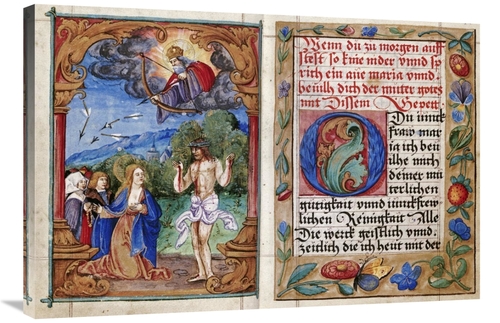 Wenn du zu morgen auff
stest so knie nider vnnd sp
rich ein aue maria vnnd
beuilh dich der mutter gotes
mit Dissem Gepett.
O Du iunck
fraw mar
ia ich beu
ilhe mich
deiner mi
terlichen
gütigkait vnnd iunckfrew
lichen Reinigkeit Alle
Die werck geistlich vnnd
zeitlich die ich heut mit der